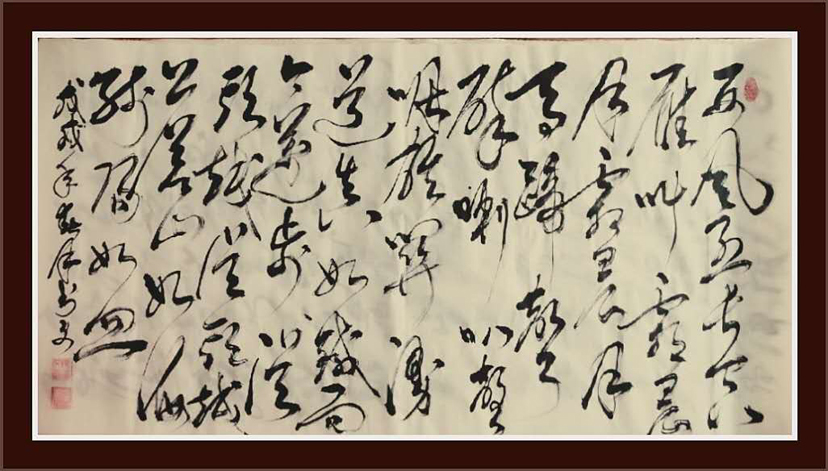 西风烈长空
雁叫霜晨
月霜晨月
马蹄声
碎喇叭声
咽雄关漫
道真如铁而
今迈步从
头越从头越
苍山如海
残阳如血
戊戌年